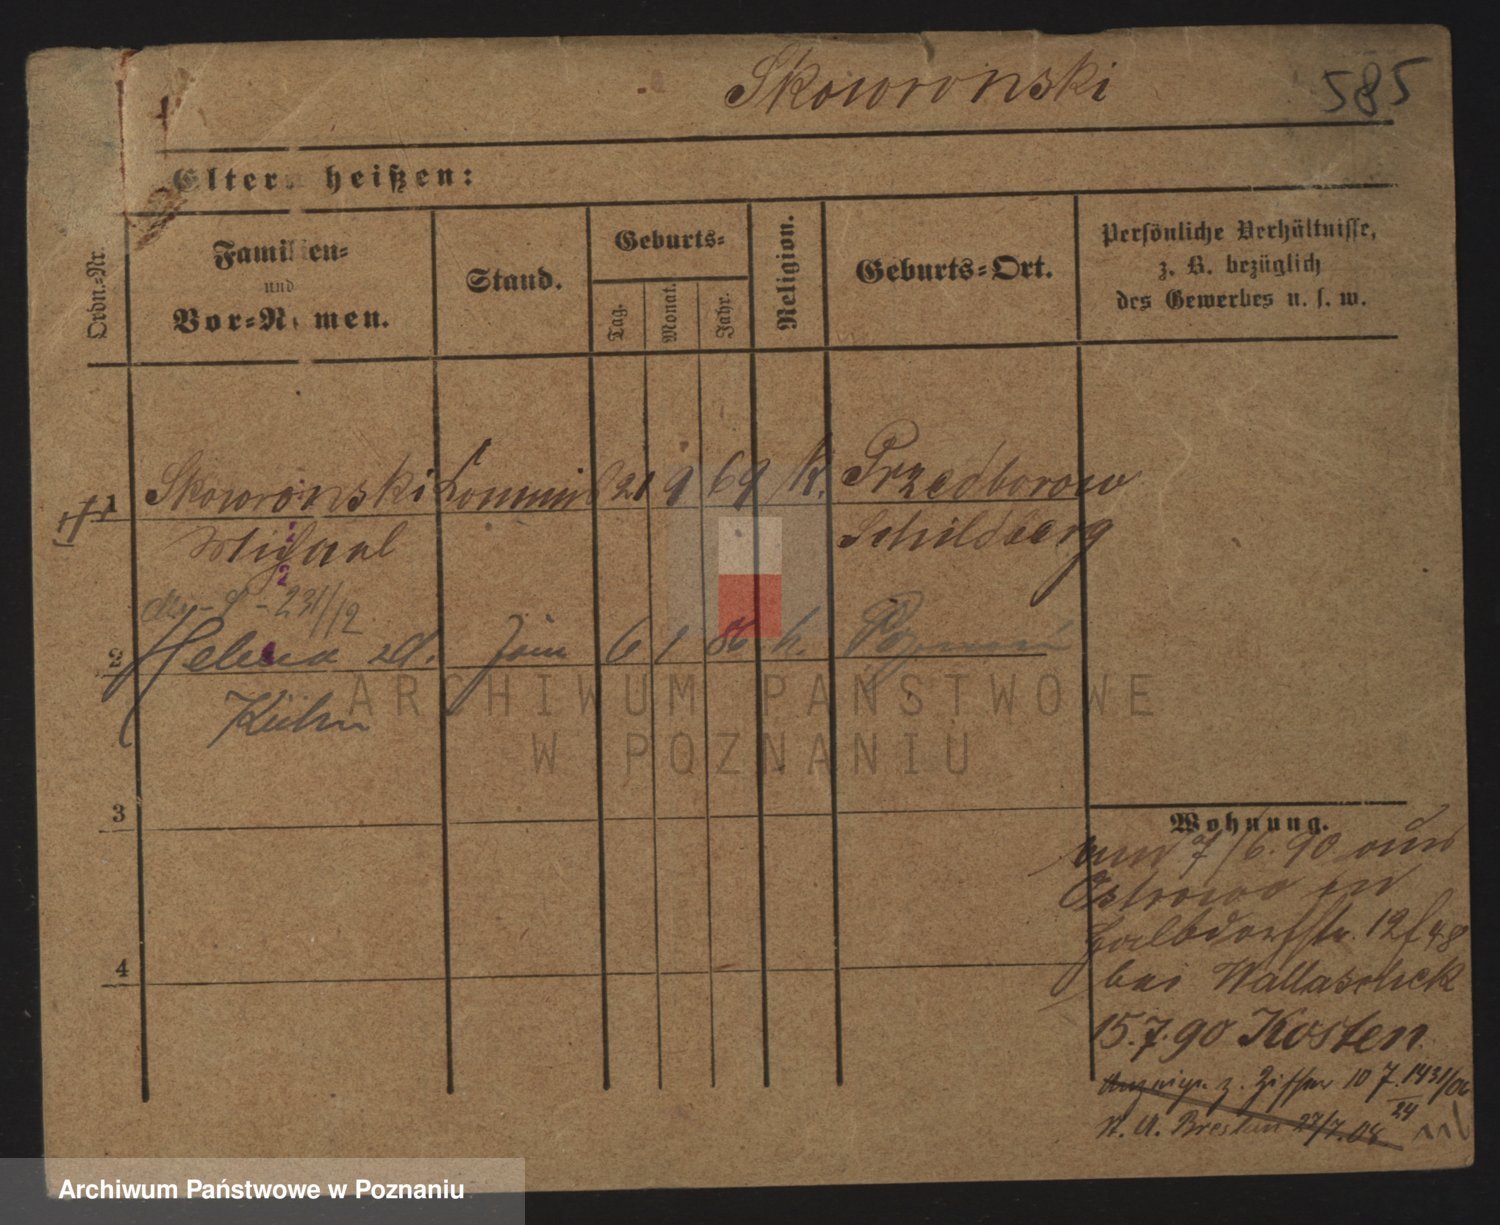 Skowronski
585
Eltern heißen:
Ordn.-Nr.
Familien-
und
Vor-Namen.
Stand.
Geburts-
Tag.
Monat.
Jahr.
Religion.
Geburts-Ort.
Persönliche Verhältnisse,
z. B. bezüglich
des Gewerbes u. s. w.
1 Skowronski Commis 21 9 69 k. Przedborow
Michael Schildberg
2 Helena 6 1 86 k. Posen
Kühn
ARCHIWUM PAŃSTWOWE
W POZNANIU
3
Wohnung.
7/6. 90
Ostrowo
Halbdorfstr. 12
bei Wallaschek
4
15.7.90 Kosten
10 7. 1431/06
24
St. A. Breslau 27/7.08
Archiwum Państwowe w Poznaniu